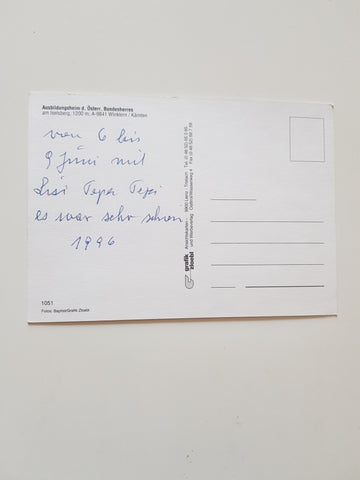 Ausbildungsheim d. Österr. Bundesheeres
am Iselsberg, 1200 m, A-9841 Winklern / Kärnten
von 6 bis
9 Juni mit
Lisi Pepa Pepi
es war sehr schön
1996
1051
Fotos: Baptist/Grafik Zloebl
grafik
zloebl
Ansichtskarten -
und Werbeverlag
9900 Lienz · Tristach